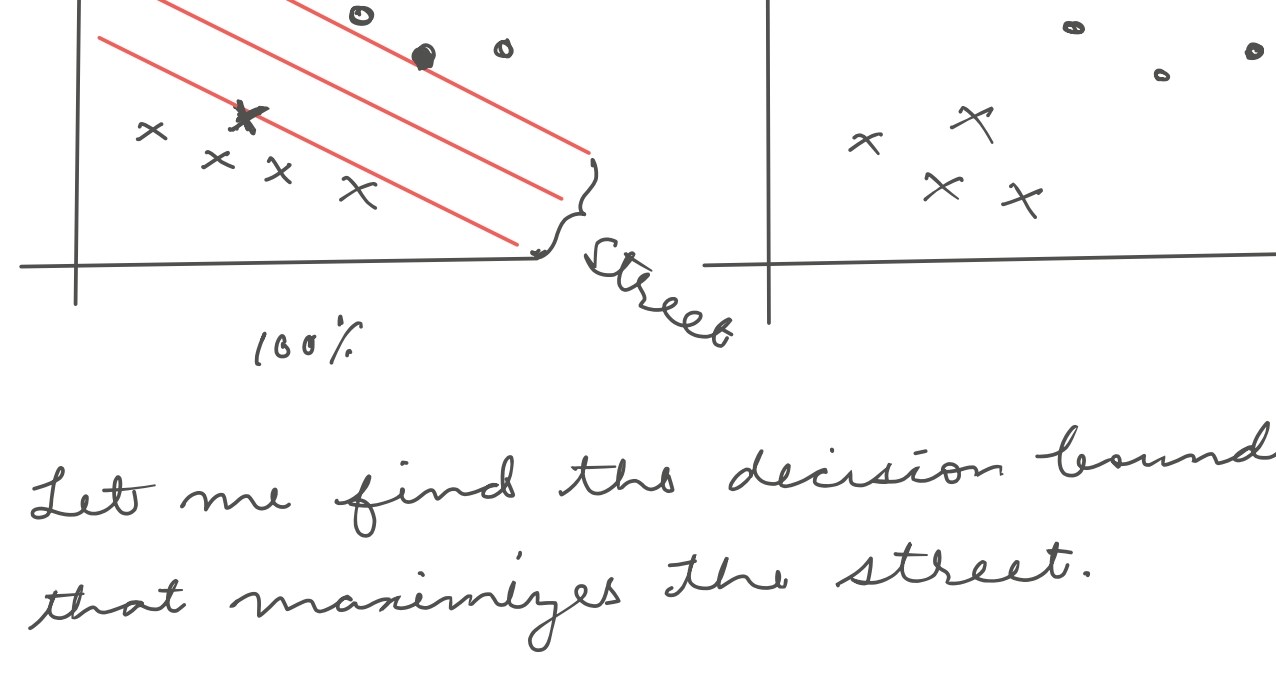 Street
100%
Let me find the decision bound
that maximizes the street.